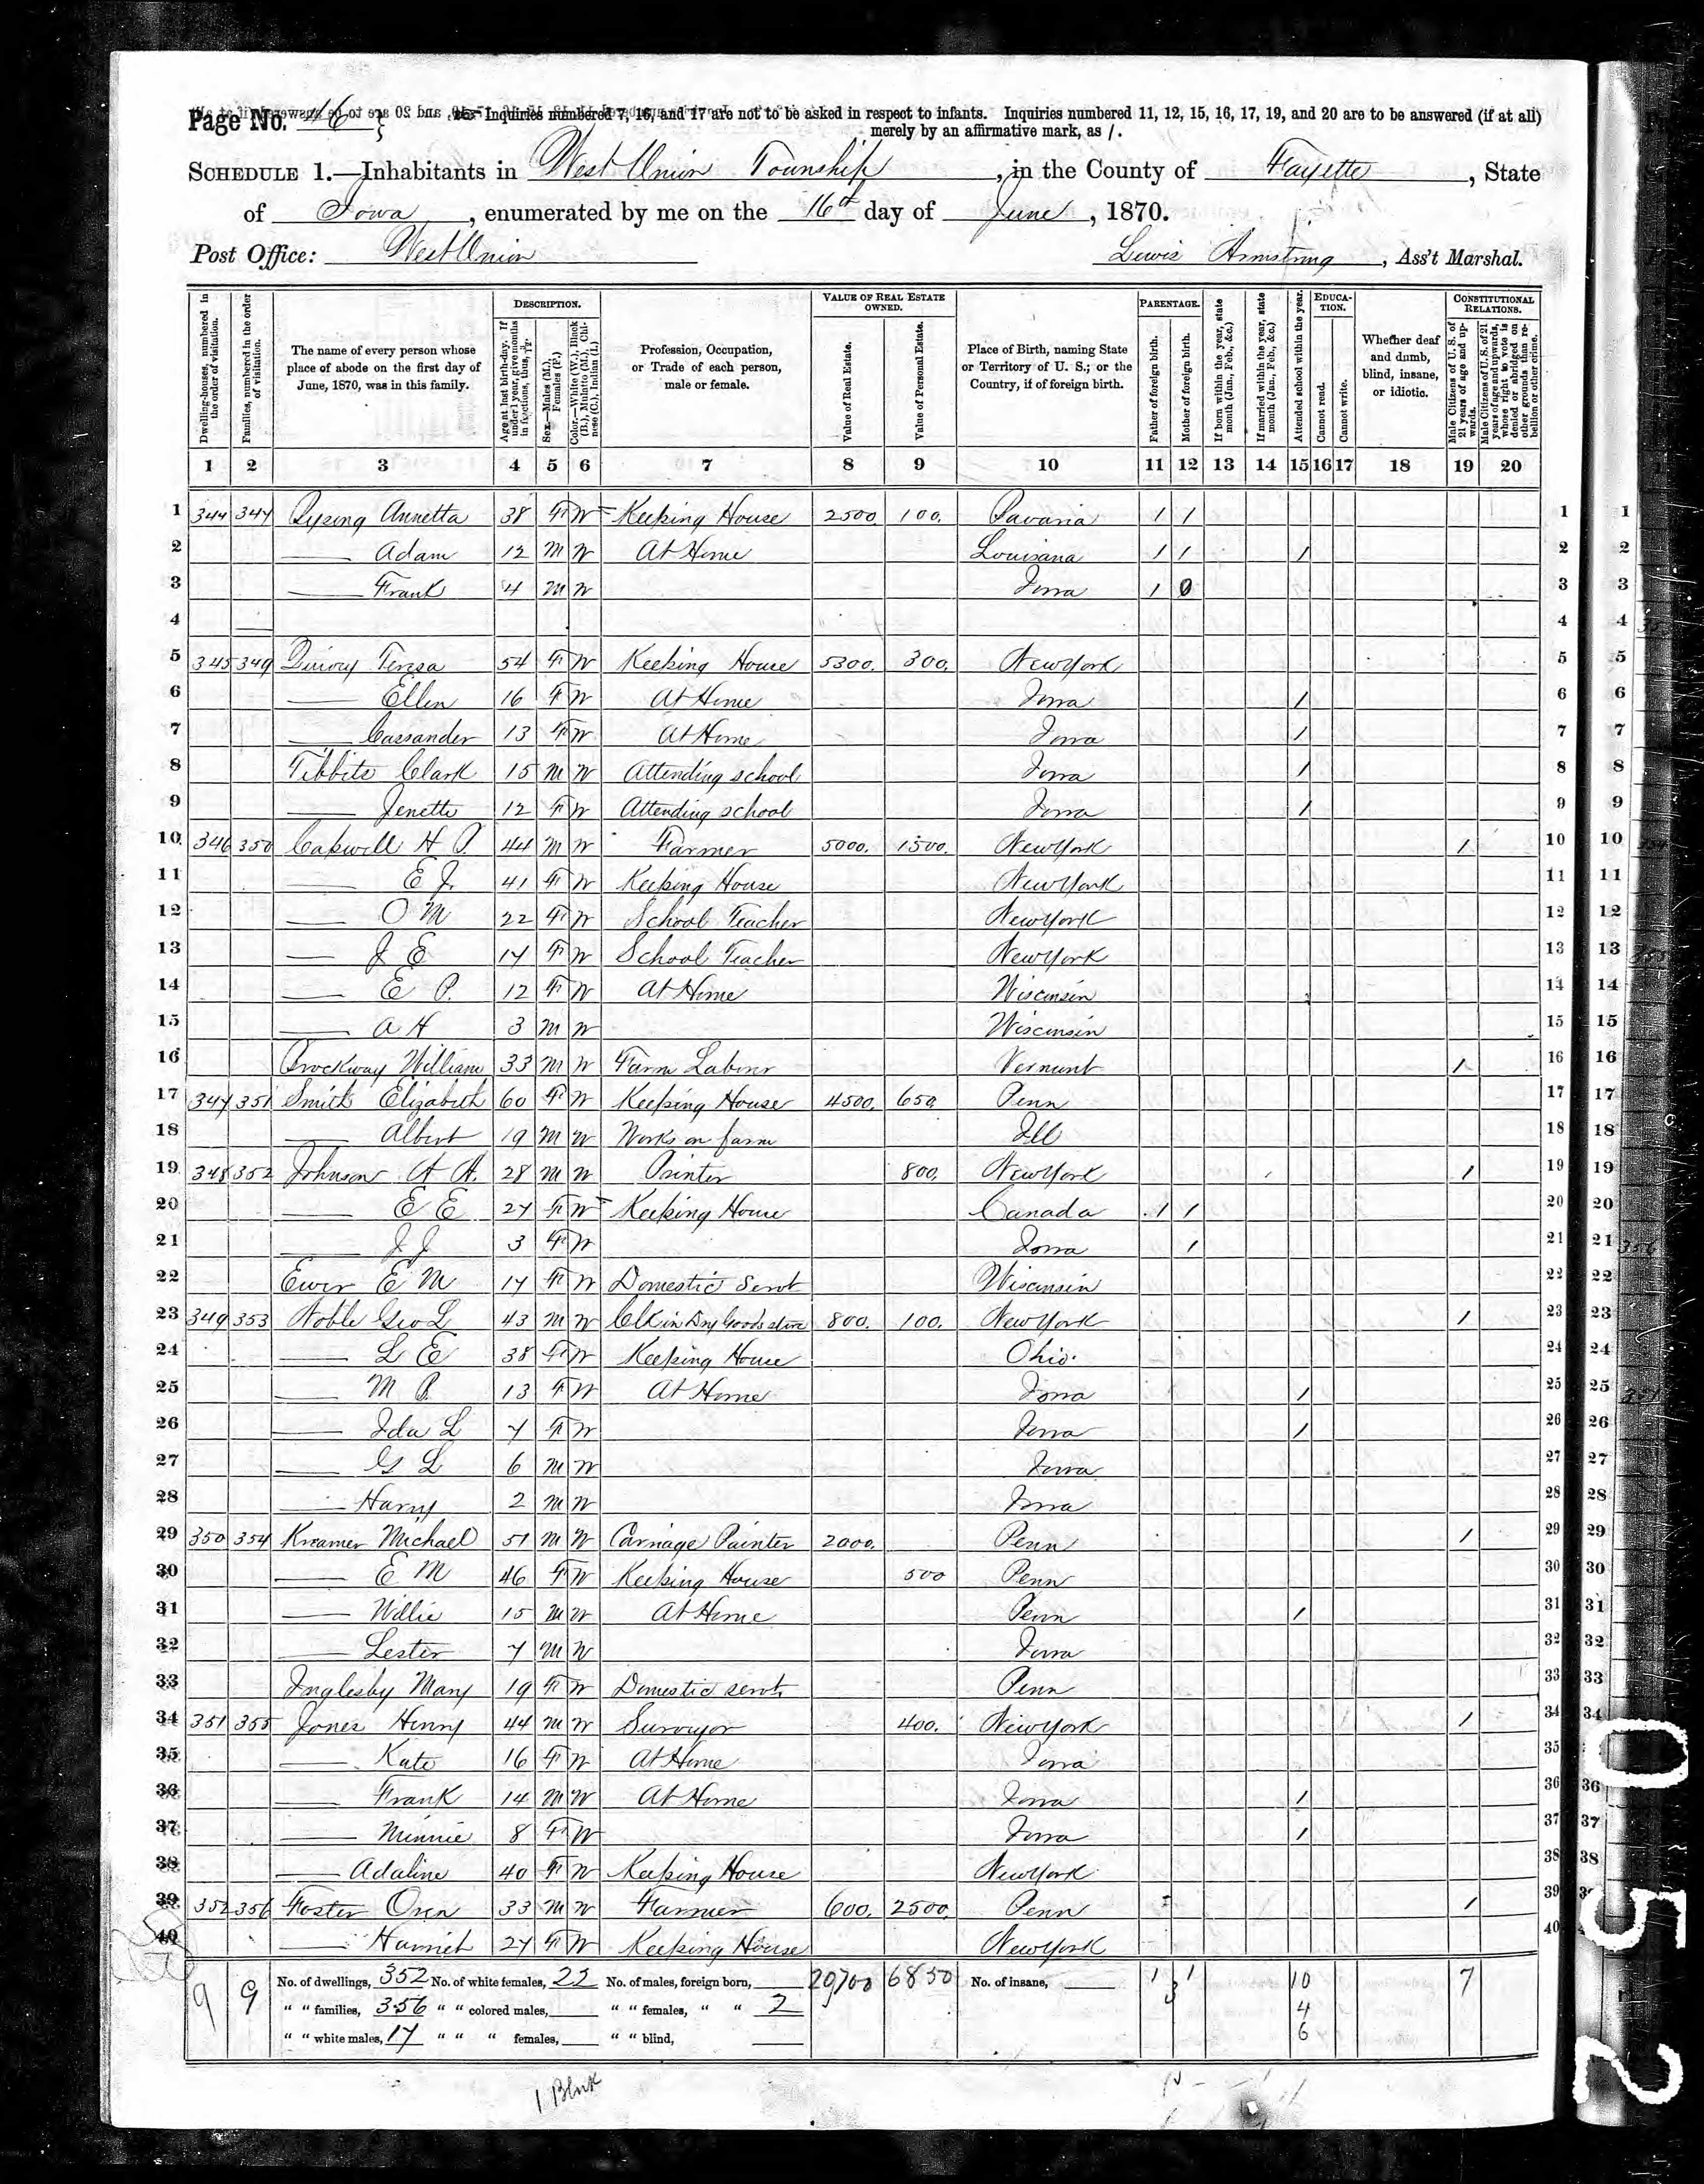 Page No. 46
Inquiries numbered 7, 16, and 17 are not to be asked in respect to infants. Inquiries numbered 11, 12, 15, 16, 17, 19, and 20 are to be answered (if at all)
merely by an affirmative mark, as /.
SCHEDULE 1.—Inhabitants in West Union Township, in the County of Fayette, State
of Iowa, enumerated by me on the 16th day of June, 1870.
Post Office: West Union
Lewis Armstrong, Ass't Marshal.
Dwelling-houses, numbered in the order of visitation.
Families, numbered in the order of visitation.
The name of every person whose place of abode on the first day of June, 1870, was in this family.
DESCRIPTION.
Age at last birth-day. If under 1 year, give months in fractions, thus, 3/12
Sex.—Males (M.), Females (F.)
Color.—White (W.), Black (B.), Mulatto (M.), Chinese (C.), Indian (I.)
Profession, Occupation, or Trade of each person, male or female.
VALUE OF REAL ESTATE OWNED.
Value of Real Estate.
Value of Personal Estate.
Place of Birth, naming State or Territory of U. S.; or the Country, if of foreign birth.
PARENTAGE.
Father of foreign birth.
Mother of foreign birth.
If born within the year, state month (Jan., Feb., &c.)
If married within the year, state month (Jan., Feb., &c.)
Attended school within the year.
EDUCATION.
Cannot read.
Cannot write.
Whether deaf and dumb, blind, insane, or idiotic.
CONSTITUTIONAL RELATIONS.
Male Citizens of U. S. of 21 years of age and upwards.
Male Citizens of U. S. of 21 years of age and upwards, whose right to vote is denied or abridged on other grounds than rebellion or other crime.
1 2 3 4 5 6 7 8 9 10 11 12 13 14 15 16 17 18 19 20
1 344 347 Annetta 38 F W Keeping House 2500. 100. Bavaria / / 1
2 —— Adam 12 M W At Home Louisiana / / / 2
3 —— Frank 4 M W Iowa / 0 3
4 4
5 345 349 Teresa 54 F W Keeping House 5300. 300. New York 5
6 —— Ellen 16 F W At Home Iowa / 6
7 —— Cassander 13 F W At Home Iowa / 7
8 Tibbits Clark 15 M W Attending school Iowa / 8
9 —— Jenette 12 F W Attending school Iowa / 9
10 346 350 Capwell H P. 44 M W Farmer 5000. 1500. New York / 10
11 —— E J. 41 F W Keeping House New York 11
12 —— O M 22 F W School Teacher New York 12
13 —— J E 17 F W School Teacher New York 13
14 —— E P. 12 F W At Home Wisconsin 14
15 —— A H 3 M W Wisconsin 15
16 Brockway William 33 M W Farm Labour Vermont / 16
17 347 351 Smith Elizabeth 60 F W Keeping House 4500. 650. Penn 17
18 —— Albert 19 M W Works on farm Ill 18
19 348 352 Johnson A A. 28 M W Painter 800. New York / 19
20 —— E E 27 F W Keeping House Canada / / 20
21 —— J J 3 F W Iowa / 21
22 Ewer E M 17 F W Domestic Servt Wisconsin 22
23 349 353 Noble Geo L 43 M W Clk in Dry Goods store 800. 100. New York / 23
24 —— L E 38 F W Keeping House Ohio. 24
25 —— M P. 13 F W At Home Iowa / 25
26 —— Ida L 7 F W Iowa / 26
27 —— G L 6 M W Iowa 27
28 —— Harry 2 M W Iowa 28
29 350 354 Kreamer Michael 51 M W Carriage Painter 2000. Penn / 29
30 —— E M 46 F W Keeping House 500 Penn 30
31 —— Willie 15 M W At Home Penn / 31
32 —— Lester 7 M W Iowa 32
33 Inglesby Mary 19 F W Domestic servt. Penn 33
34 351 355 Jones Henry 44 M W Surveyor 400. New York / 34
35 —— Kate 16 F W At Home Iowa 35
36 —— Frank 14 M W At Home Iowa / 36
37 —— Minnie 8 F W Iowa / 37
38 —— Adaline 40 F W Keeping House New York 38
39 352 356 Foster Oren 33 M W Farmer 600. 2500. Penn / 39
40 —— Harriet 27 F W Keeping House New York 40
9 9 No. of dwellings, 352 No. of white females, 22 No. of males, foreign born, 20700 6850 No. of insane, 1 3 1 10 7
" " families, 356 " " colored males, " " females, " " 2 4
" " white males, 17 " " " females, " " blind, 6
1 Blnk